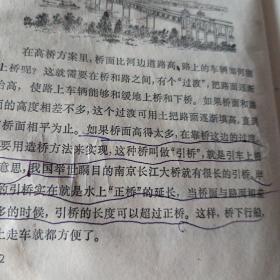 在高桥方案里，桥面比河边道路高，路上的车辆如何能
上桥呢？这就需要在桥和路之间，有个“过渡”，把路面逐渐
抬高，使路上车辆能够和缓地上桥和下桥。如果桥面和路
面的高度相差不多，这个过渡可用土把路面逐渐填高，直
桥面相平为止。如果桥面高得太多，在靠桥这边的过
要用造桥方法来实现，这种桥叫做“引桥”，就是引车上
意思，我国举世瞩目的南京长江大桥就有很长的引桥，
的引桥实在就是水上“正桥”的延长，当桥面与路面
多的时候，引桥的长度可以超过正桥。这样，桥下行船，
上走车就都方便了。
2